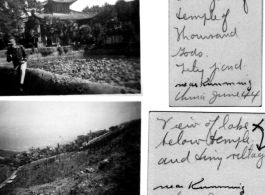 temple of
Thousand
Gods.
Lily pond
near Kunming
China June 44
View of lake
below temple
and tiny village
near Kunming